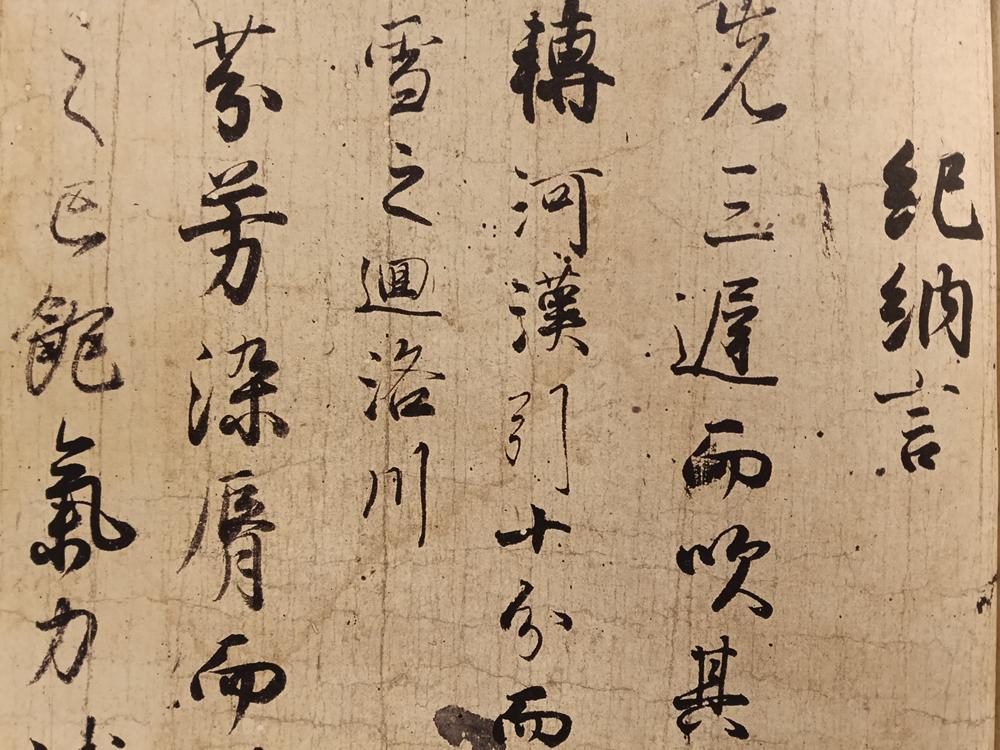 紀納言
先三遲而吹其
轉河漢引十分而
雪之迴洛川
芬芳染脣而
之已飽氣力